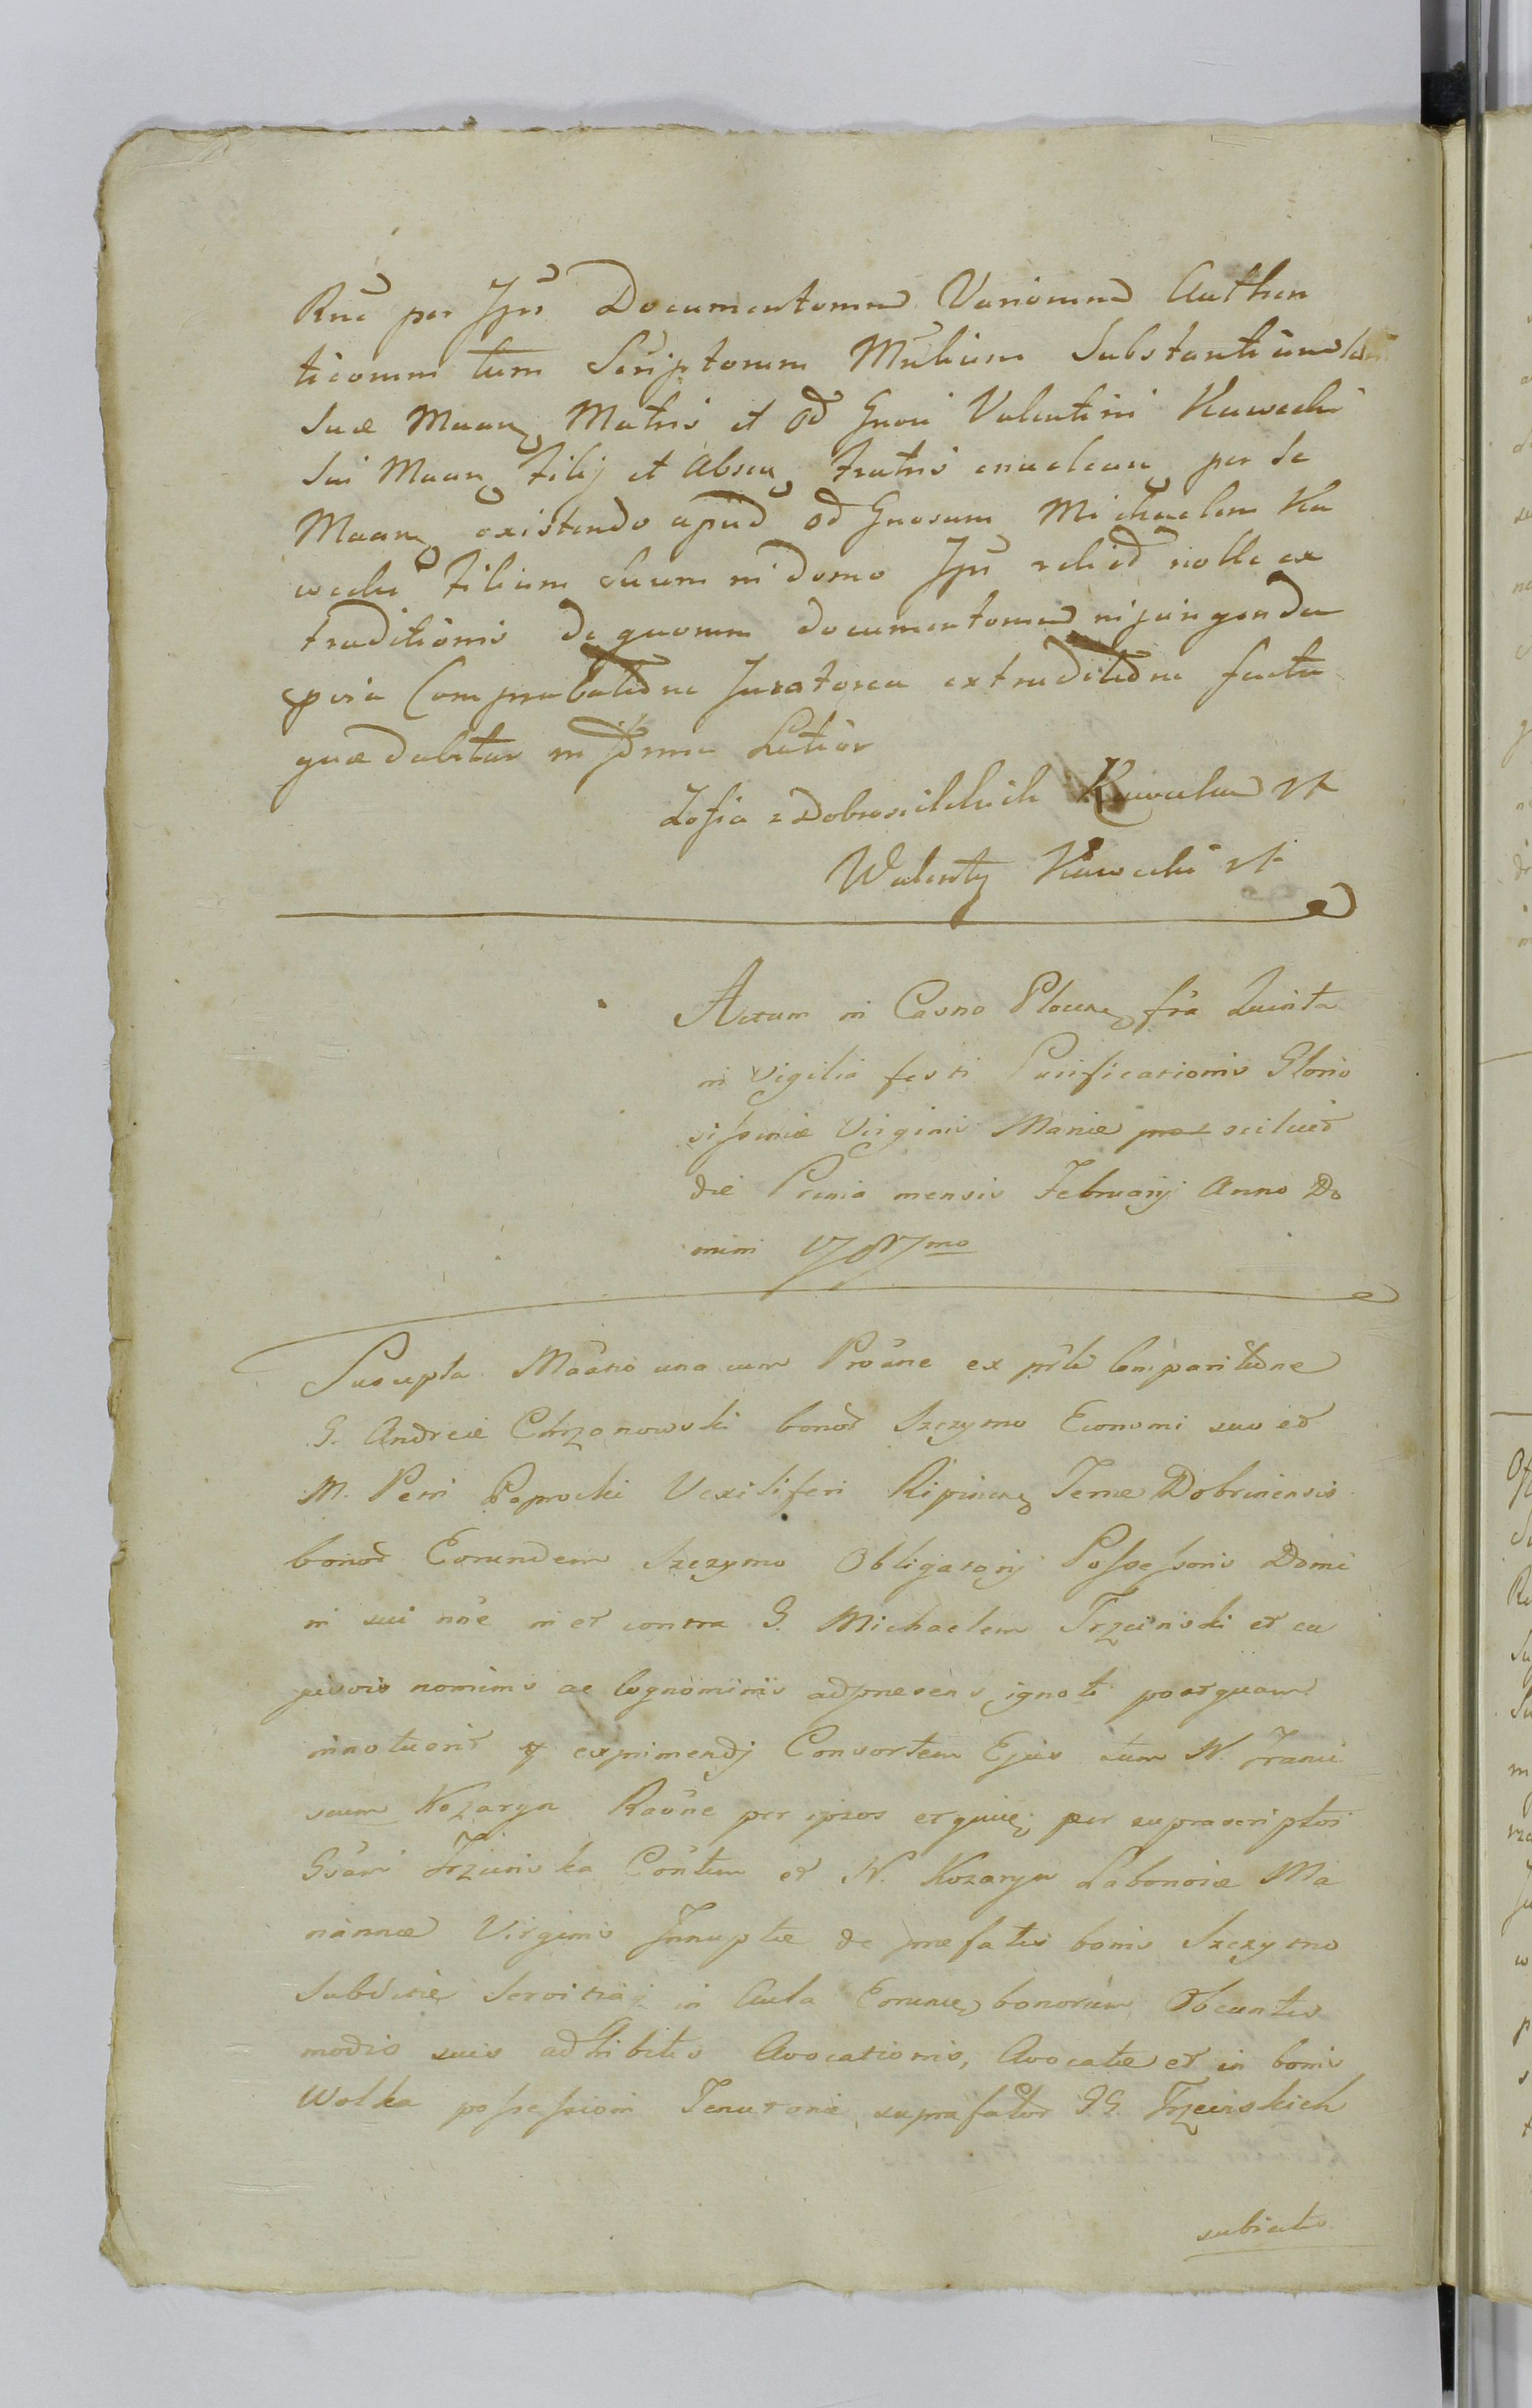 Rne per Ipn Documentorum Variorum Authen
ticorum tum Scriptorum Mulium Substantiam
suæ Maan Matris et Gnosi Valentini Kawecki
sui Maan filij et Absen fratris enuclean per se
Maan existendo apud Gnosum Michaelem Ka
wecki filium suum in domo Ipn nolle ex
traditionis de quorum documentorum injungenda
Comprobatione Juratorea extraditione facta
quæ dabitur in Latior
Zofia z Dobrosielskich Kawecka
Walenty Kawecki
Actum in Casno Plocen fra Quinta
in vigilia festi Purificationis Glorio
sissimæ Virginis Mariæ scilicet
die Prima mensis Februarij Anno Do
mini 1787mo
Suscepta Maano una cum Proãne ex comparitione
G. Andreæ Chrzanowski bonor Szczymo Economi suo et
M. Petri Paprocki Vexiliferi Ripinen Terræ Dobrinensis
bonor Eorundem Szczymo Obligatorij Possessoris Domi
ni sui nne in et contra G. Michaelem Trzcinski et cu
jusvis nominis ac Cognominis adpresens ignoti postquam
innotuerit exprimendj Consortem Ejus tum N. Franci
scum Kozaryn Raõne per ipsos et quie per suprascriptos
Trzcinska Contem et N. Kozaryn Laboriosæ Ma
riannæ Virginis Innuptæ de præfatis bonis Szczymo
Subditæ Servitia in Aula bonorum Obeuntis
modis suis adhibitis Avocationis, Avocatæ et in bonis
Wolka possessioni Tenutoriæ suprafator GG. Trzcinskich
subiectis